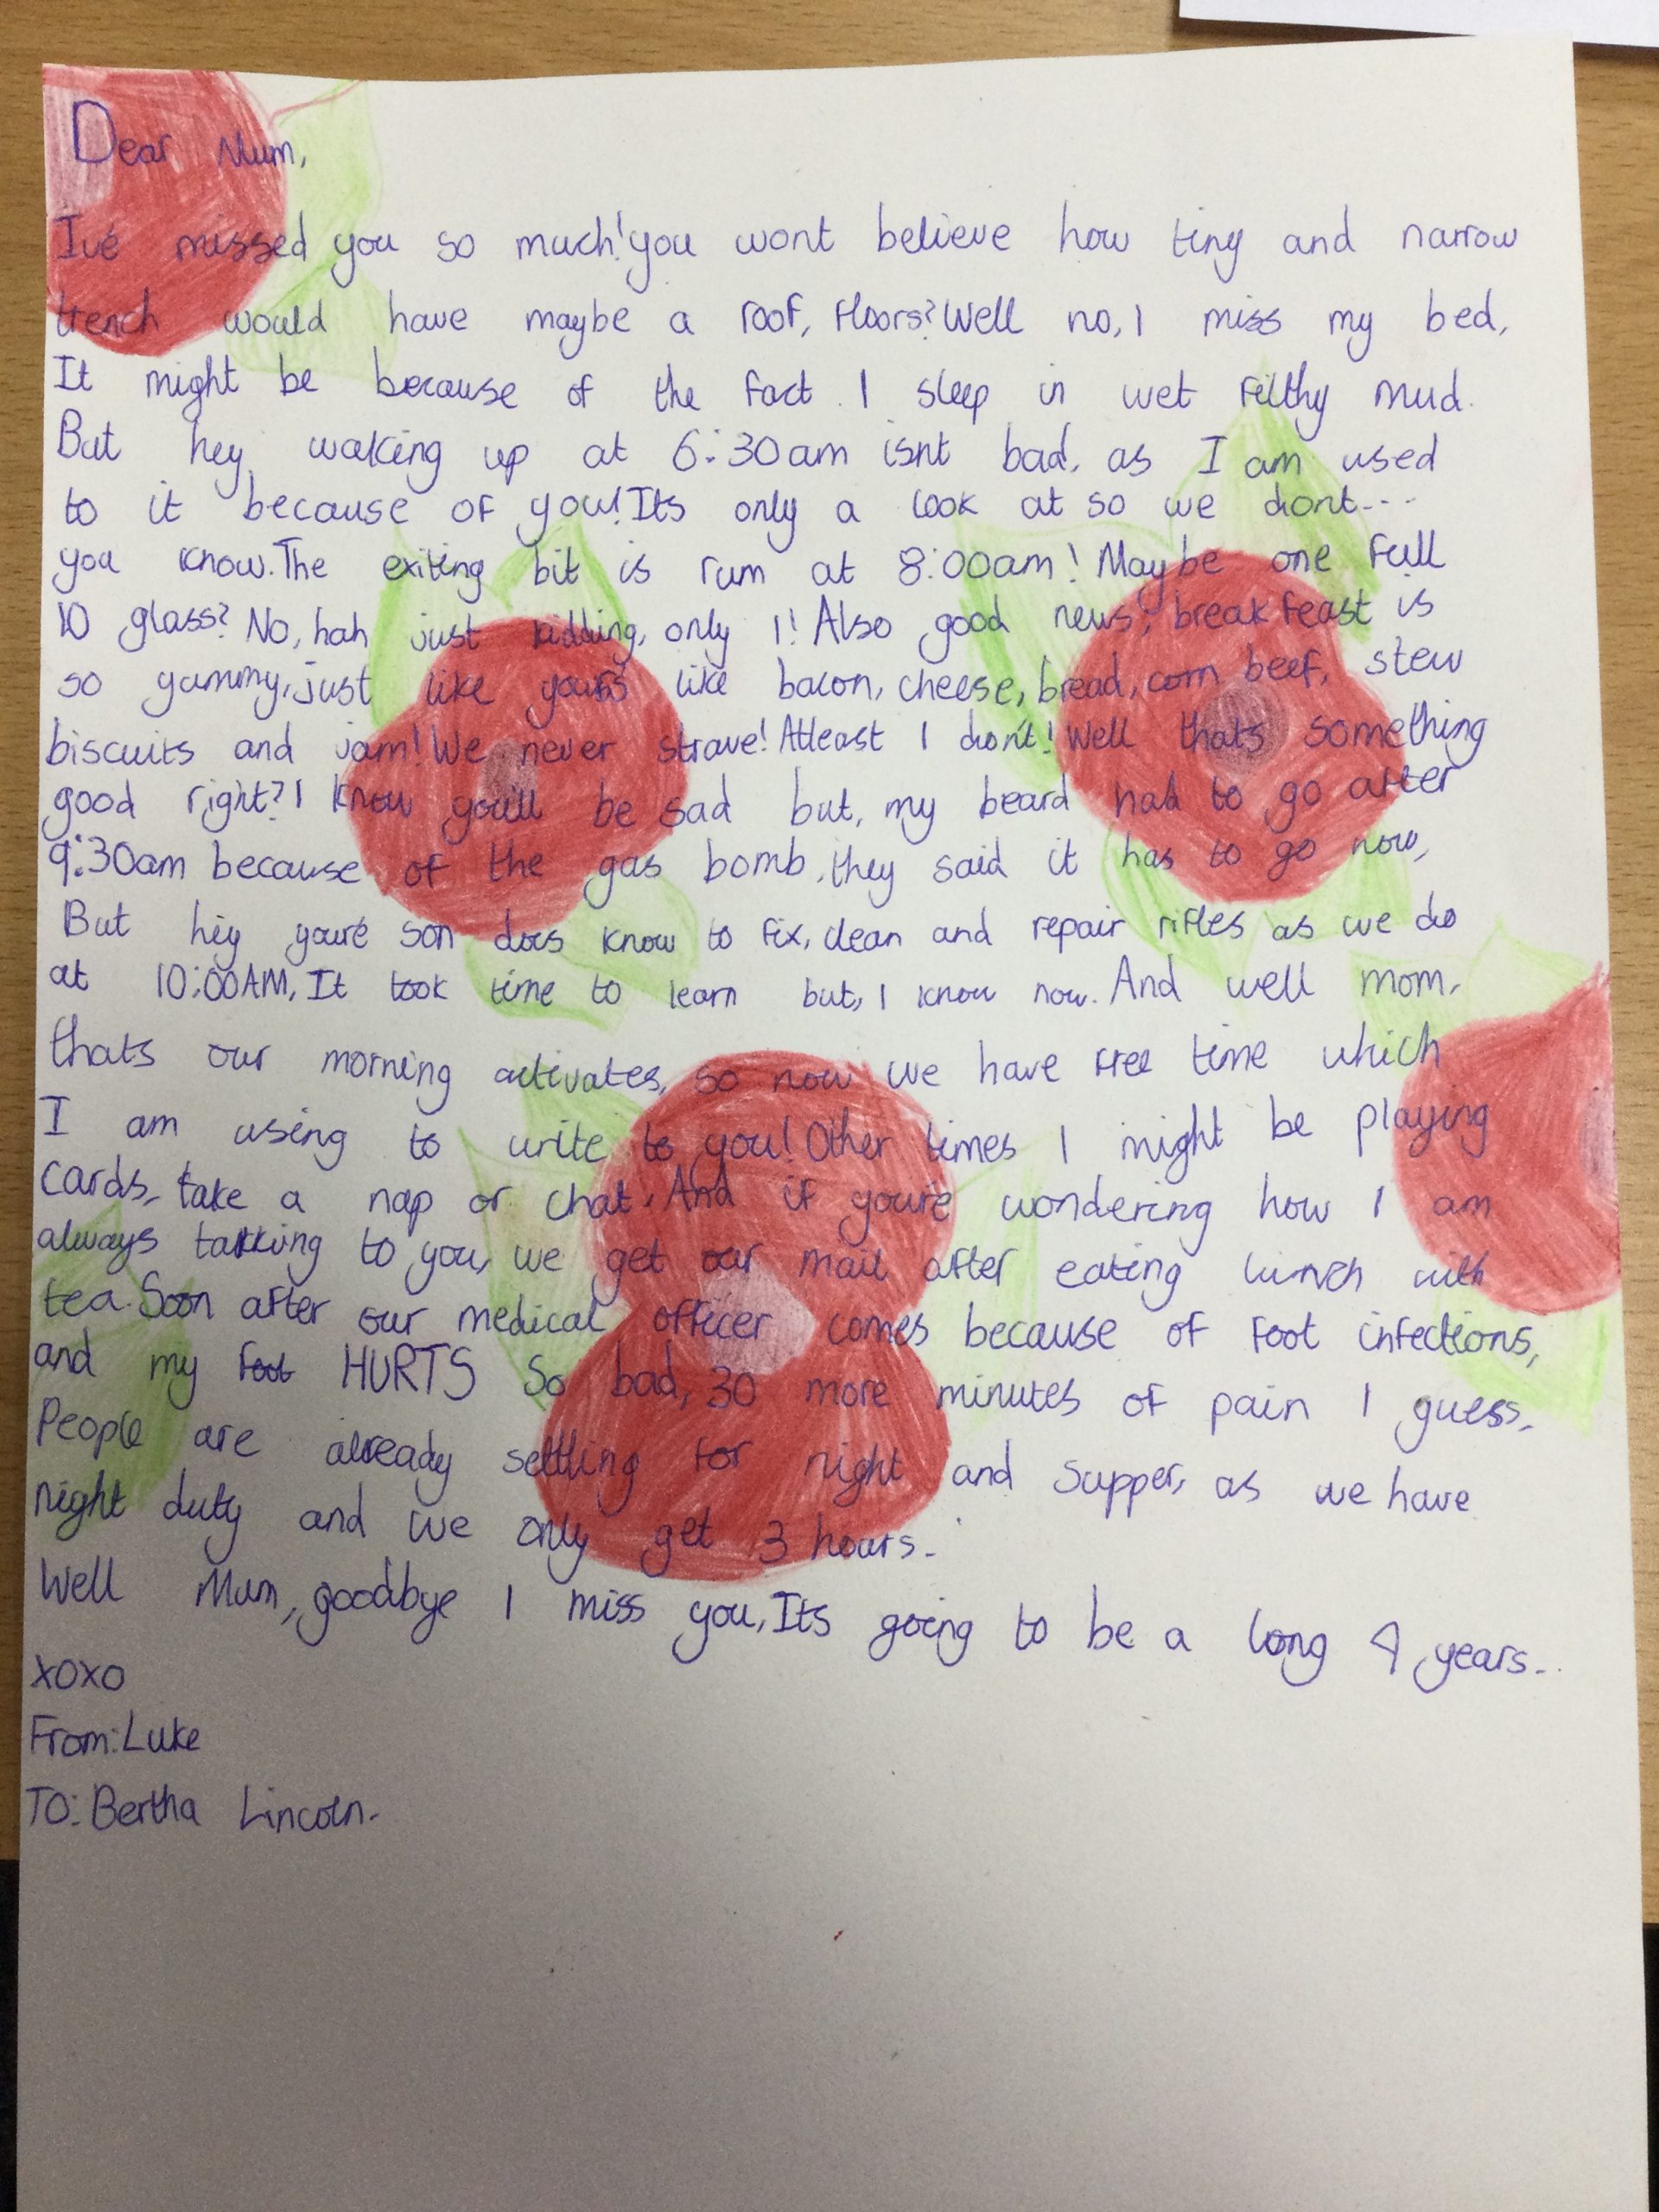 Dear Mum,
Ive missed you so much! you wont believe how tiny and narrow
trench would have maybe a roof, floors? Well no, I miss my bed,
It might be because of the fact I sleep in wet filthy mud.
But hey waking up at 6:30am isnt bad, as I am used
to it because of you! Its only a look at so we dont...
you know. The exiting bit is rum at 8:00am! Maybe one full
10 glass? No, hah just kidding, only 1! Also good news; breakfeast is
so yummy, just like yours like bacon, cheese, bread, corn beef, stew
biscuits and jam! We never strave! Atleast I don't! Well thats something
good right? I know you'll be sad but, my beard had to go after
9:30am because of the gas bomb, they said it has to go now,
But hey you're son does know to fix, clean and repair rifles as we do
at 10:00AM, It took time to learn but, I know now. And well mom,
thats our morning activates, so now we have free time which
I am using to write to you! Other times I might be playing
cards, take a nap or chat. And if you're wondering how I am
always talking to you, we get our mail after eating lunch with
tea. Soon after our medical officer comes because of foot infections,
and my foot HURTS So bad, 30 more minutes of pain I guess.
People are already settling for night and supper, as we have
night duty and we only get 3 hours.
Well Mum, goodbye I miss you, Its going to be a long 4 years..
xoxo
From: Luke
TO: Bertha Lincoln.